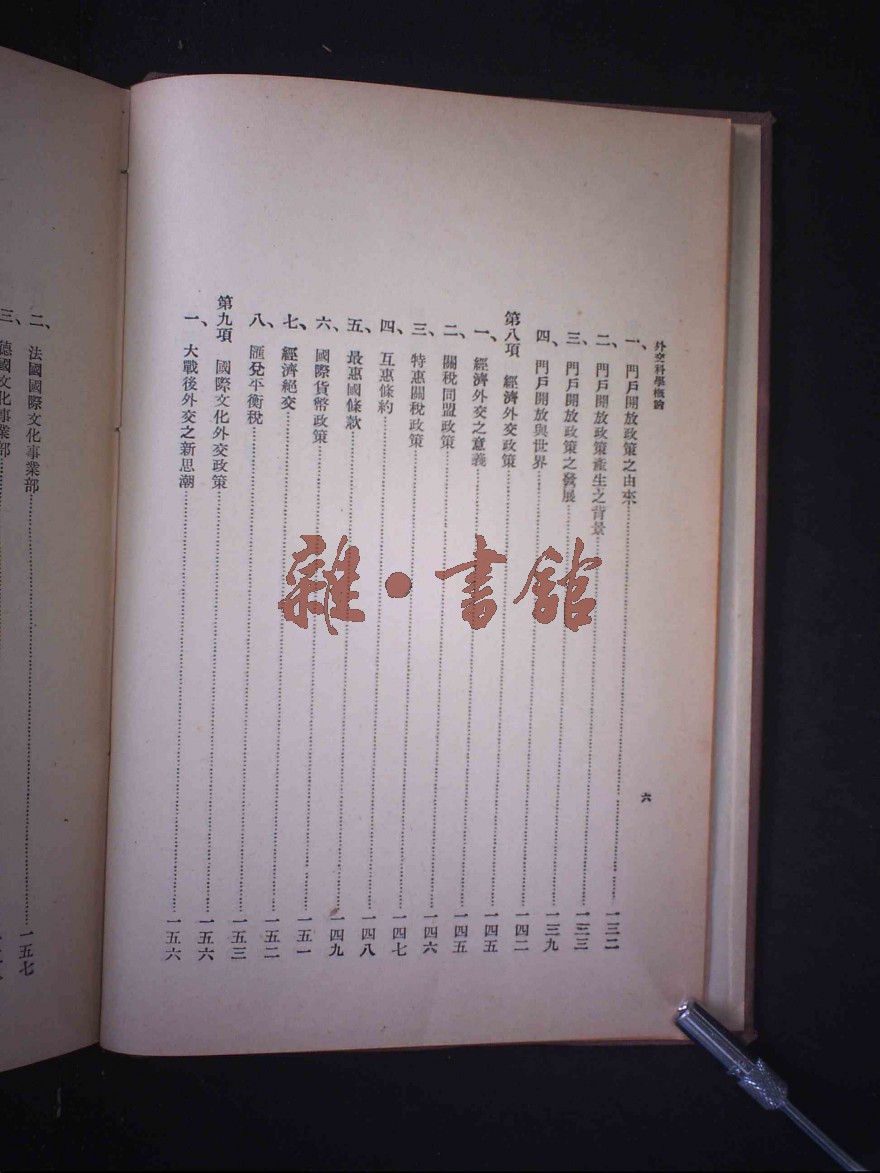 外交科學概論
六
一、門戶開放政策之由來……一三二
二、門戶開放政策產生之背景……一三三
三、門戶開放政策之發展……一三九
四、門戶開放與世界……一四二
第八項 經濟外交政策……一四五
一、經濟外交之意義……一四五
二、關稅同盟政策……一四六
三、特惠關稅政策……一四七
四、互惠條約……一四八
五、最惠國條款……一四九
六、國際貨幣政策……一五一
七、經濟絕交……一五二
八、匯兌平衡稅……一五三
第九項 國際文化外交政策……一五六
一、大戰後外交之新思潮……一五六
二、法國國際文化事業部……一五七
三、德國文化事業部……
雜·書館